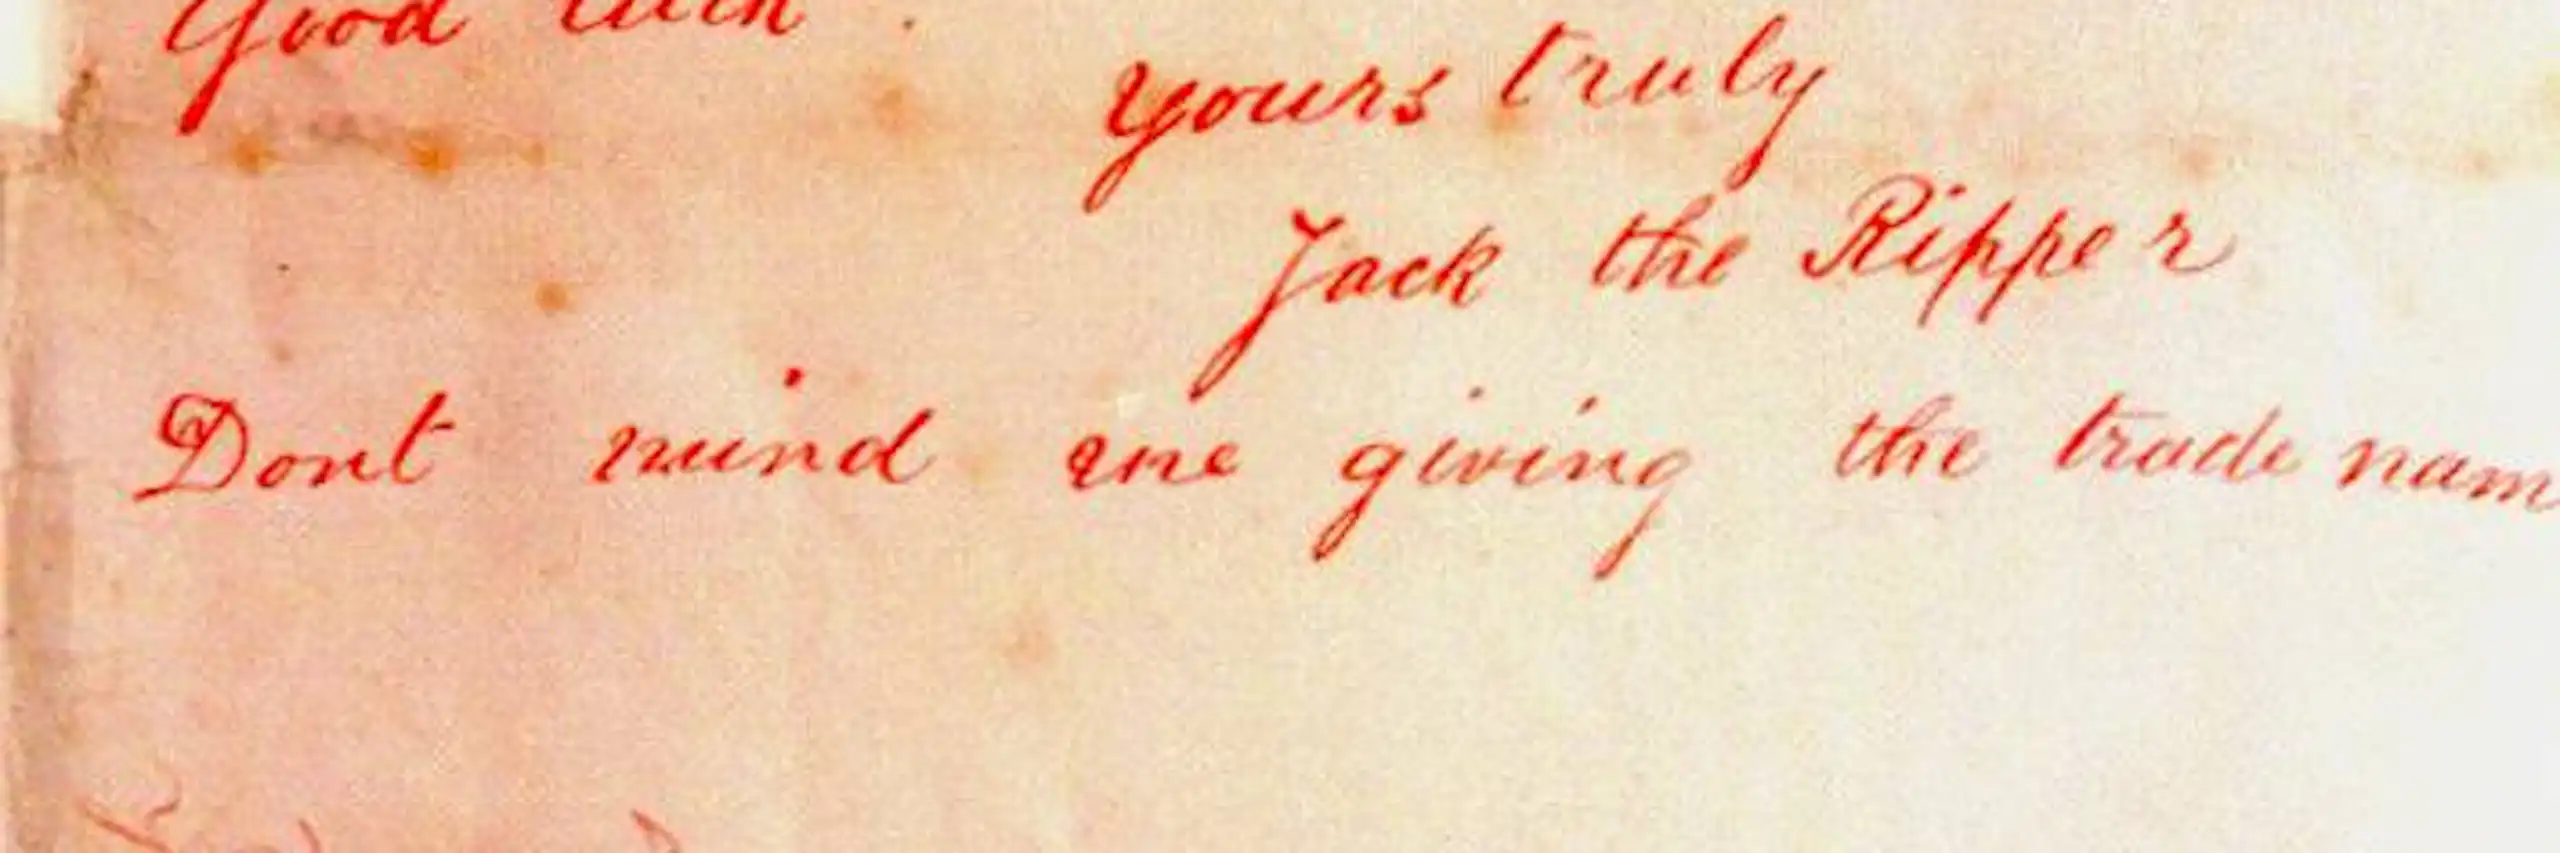 Good luck.
yours truly
Jack the Ripper
Dont mind me giving the trade nam